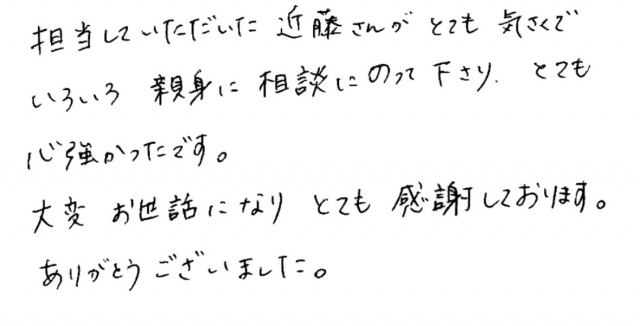 担当していただいた 近藤さんが とても 気さくで
いろいろ 親身に 相談にのって下さり、とても
心強かったです。
大変 お世話になり とても 感謝しております。
ありがとうございました。